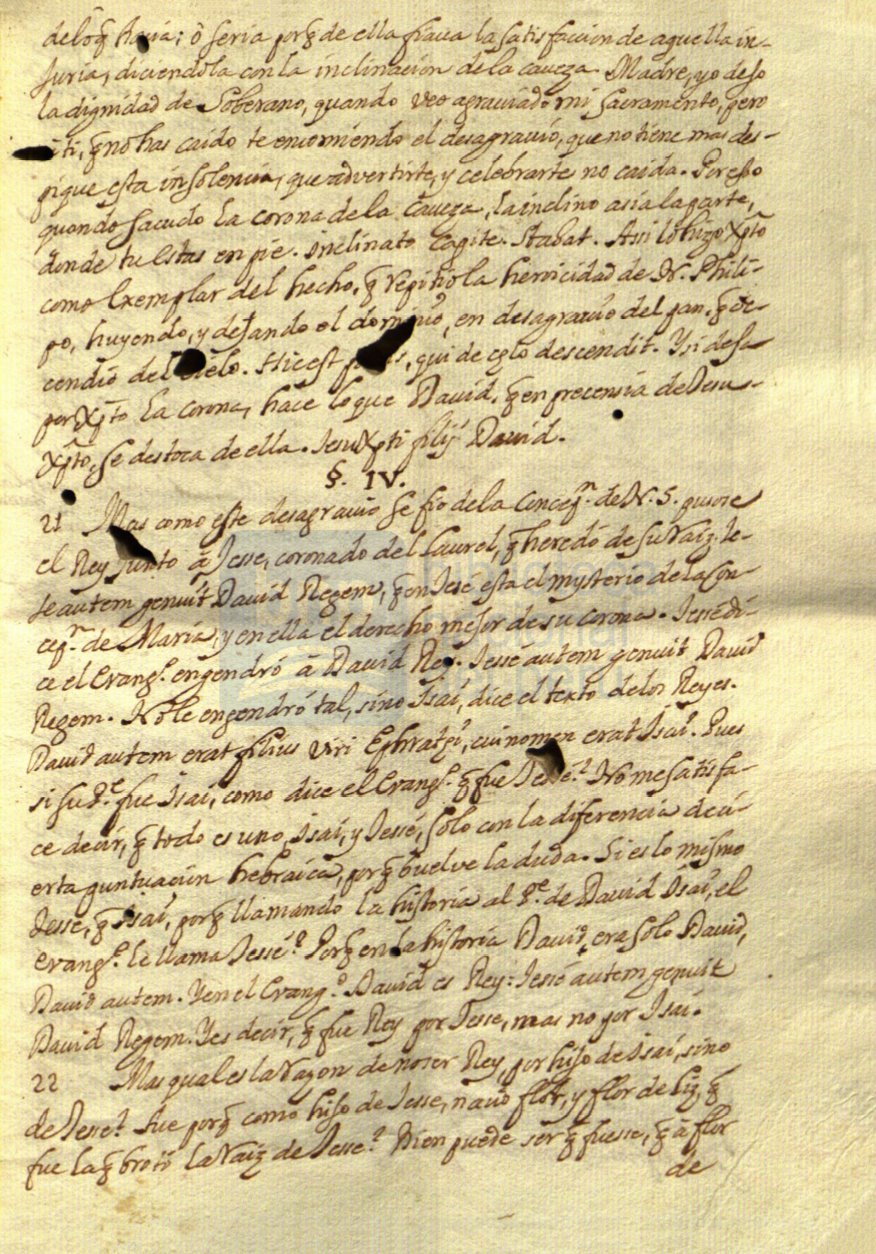 delo q̃ hacia; ò seria porq̃ de ella fiaua la satisfaccion de aquella in-
Juria, diciendola con la inclinacion de la caueza. Madre, yo deso
la dignidad de Soberano, quando veo agrauiado mi Sacramento, pero
ti, q̃ no has caido te encomiendo el desagrauio, que no tiene mas des-
pique esta insolencia, que advertirte, y celebrarte no caida. Por esso
quando sacudo la corona de la caueza, la inclino asia la parte,
donde tu estas en pie. inclinato capite. Stabat. Asi lo hizo Xp̃to
como exemplar del hecho, q̃ repitio la heroicidad de N. Phili-
po, huyendo, y dejando el dominio, en desagrauio del pan, q̃ de-
cendió del Cielo. Hic est panis, qui de cęlo descendit. Y si desa
por Xp̃to la corona, hace lo que David, q̃ en precensia de Jesu-
Xp̃to, se destoca de ella. Jesu Xpti filij David.
§. IV.
21 Mas como este desagrauio se fio de la Concep.ⁿ de N. S. pusose
el Rey junto â Jesse, coronado del Laurel, q̃ heredó de su raiz. Je-
se autem genuit David Regem, q̃ en Jesé esta el mysterio de la Con-
cep.ⁿ de Maria, y en ella el derecho mejor de su corona. Jessé di-
ce el Evang.º engendró â David Rey. Jessé autem genuit David
Regem. No le engendró tal, sino Isaí, dice el texto de los Reyes.
David autem erat filius viri Ephratęi, cui nomen erat Isaí. Pues
si su P.e fue Isai, como dice el Evang.º q̃ fue Jesse? No me satisfa-
ce decir, q̃ todo es uno, Isaí, y Jessé, solo con la diferencia de ci-
erta puntuacion hebraica, porq̃ buelve la duda. Si es lo mismo
Jesse, q̃ Isaí, porq̃ llamando la historia al P.e de David Isaí, el
evang.º le llama Jessé? Porq̃ en la historia David, era solo David,
David autem. Y en el Evang.º David es Rey: Jessé autem genuit
David Regem. Y es decir, q̃ fue Rey por Jesse, mas no por Isaí.
22 Mas qual es la razon de no ser Rey, por hijo de Isaí, sino
de Jesse? fue porq̃ como hijo de Jesse, nació flor, y flor de liz, q̃
fue la q̃ brotó la raiz de Jesse? Bien puede ser q̃ fuesse, q̃ â flor
de